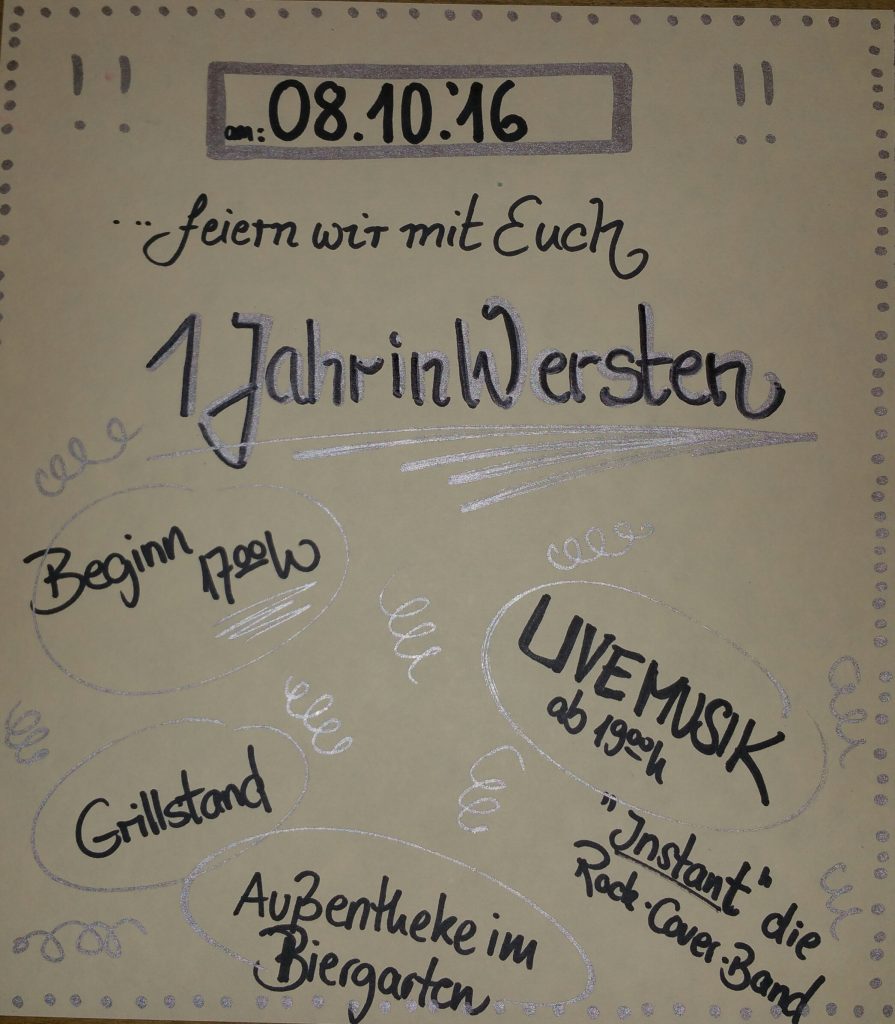 !! !!
am: 08.10.'16
... feiern wir mit Euch
1 Jahr in Wersten
Beginn 17⁰⁰ h
LIVE MUSIK
ab 19⁰⁰ h
"Instant" die
Rock-Cover-Band
Grillstand
Außentheke im
Biergarten